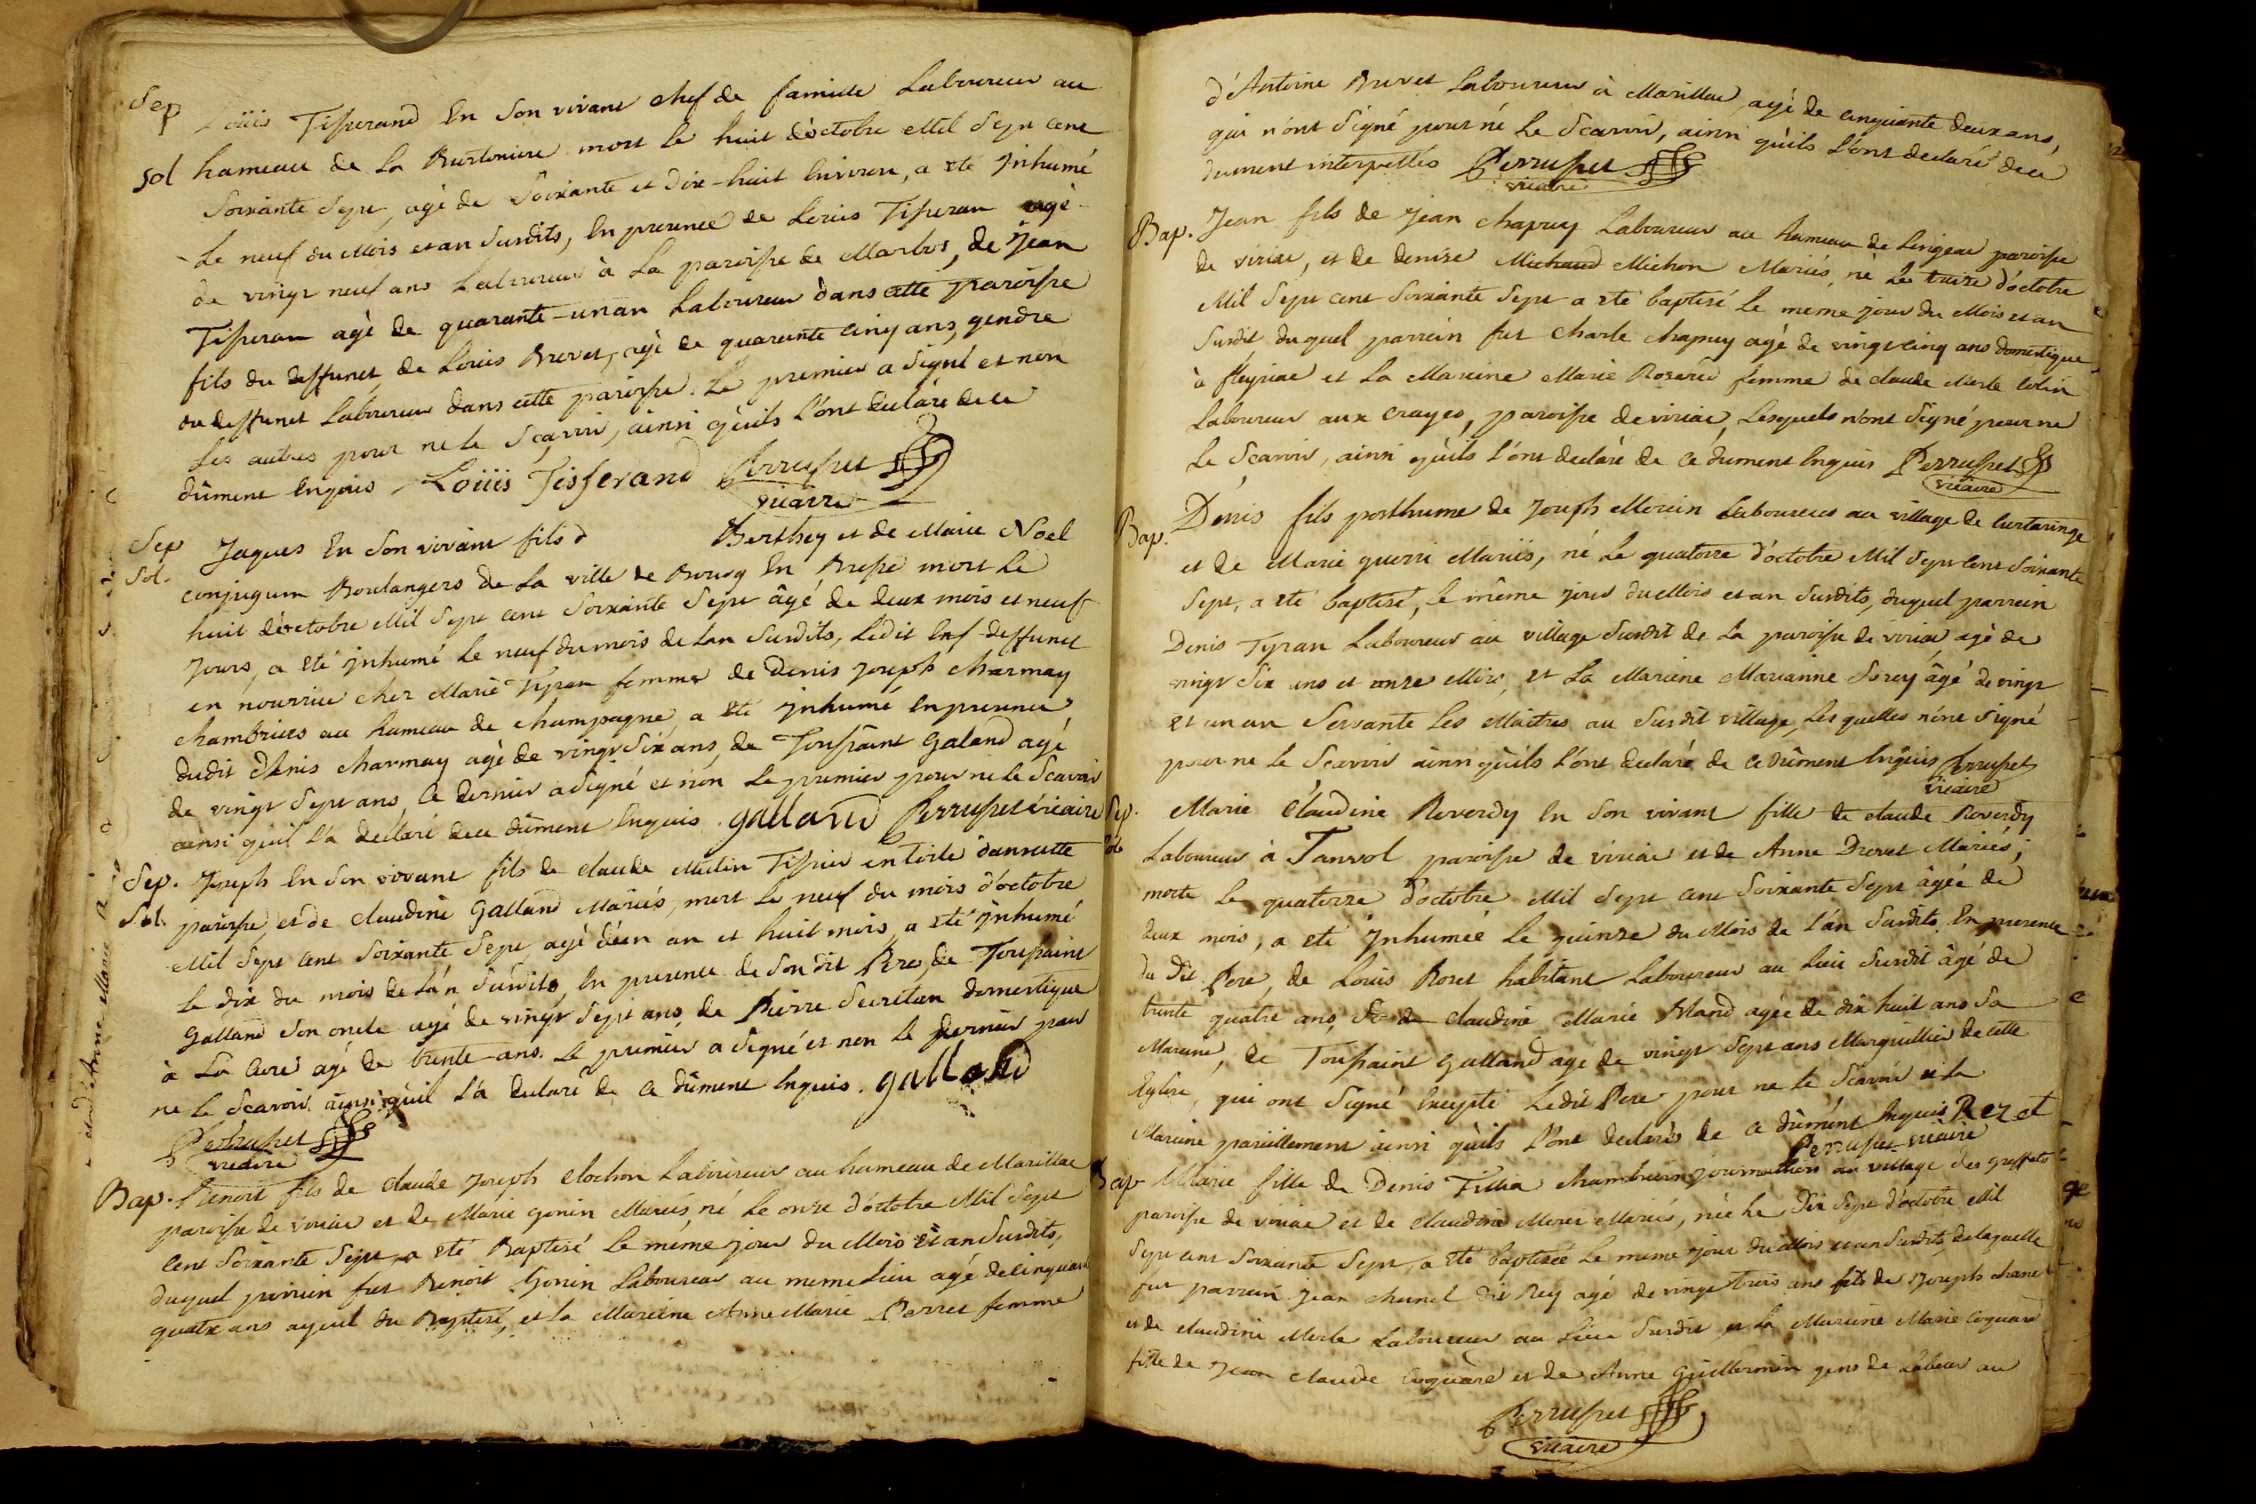 Sep Loüis Tisserand En Son vivant chef de famille Laboureur au
Sol hameau de La Burtoniere mort le huit d'octobre Mil Sept cent
Soixante Sept, agé de Soixante et dix-huit Environ, a eté Inhumé
Le neuf du Mois et an Surdits, En presence de Louis Tisseran agé
de vingt neuf ans Laboureur à La paroisse de Marbos, de Jean
Tisseran agé de quarante-un an Laboureur dans cette paroisse
fils du deffunct de Louis Brevet, agé de quarante cinq ans, gendre
du deffunct Laboureur dans cette paroisse. Le premier a Signé et non
Les autres pour ne le Sçavoir, ainsi qu'ils L'ont declaré de ce
dûment Enquis. Loüis Tisserand Perrusset
vicaire
Sep Jaques En Son vivant fils d Berthey et de Marie Noel
Sol. conjugum Boulangers de La ville de Bourg En Bresse mort Le
huit d'octobre Mil Sept cent Soixante Sept âgé de deux mois et neuf
jours, a eté Inhumé Le neuf du mois de Lan Surdits, Ledit Enf deffunct
en nourrice chez Marie Tyran femme de Denis Joseph Charmay
chambrier au hameau de champagne, a eté Inhumé En presence
dudit Denis Charmay agé de vingt Six ans, de Toussaint Galand agé
de vingt Sept ans, Ce dernier a Signé et non Le premier pour ne le Scavoir
ainsi qu'il L'a declaré de ce dûment Enquis. galland Perrusset vicaire
Sep. Joseph En Son vivant fils de claude Mulin Tissier en toile dans cette
Sol. paroisse et de claudine Galland Mariés, mort Le neuf du mois d'octobre
Mil Sept cent Soixante Sept, agé d'un an et huit mois, a eté Inhumé
Le dix du mois de L'an Surdits, En presence de Son dit Pere, de Toussaint
Galland Son oncle agé de vingt Sept ans, de Pierre Secretan domestique
à La Cure agé de trente ans. Le premier a Signé et non Le dernier pour
ne le Scavoir ainsi qu'il L'a declaré de ce dûment Enquis. galland
Perrusset
vicaire
Bap. Benoit fils de claude Joseph Clochon Laboureur au hameau de Marillac
paroisse de viriac et de Marie Gonin Mariés, né Le onze d'octobre Mil Sept
Cent Soixante Sept, a eté Baptisé Le meme jour du Mois et an Surdits,
duquel parrein fut Benoit Gonin Laboureur au meme Lieu agé de cinquante
quatre ans ayeul du Baptisé, et La Mareine Anne Marie Perret femme
d'Antoine Brevet Laboureur à Marillac, agé de cinquante deux ans,
qui n'ont Signé pour né Le Scavoir, ainsi qu'ils L'ont declaré de ce
duement interpellés Perrusset
vicaire
Bap. Jean fils de Jean Chapuy Laboureur au hameau de Lingeat paroisse
de viriac, et de Denise Michaud Michon Mariés, né Le treize d'octobre
Mil Sept cent Soixante Sept a eté baptisé Le meme jour du Mois et an
Surdit duquel parrein fut Charle Chapuy agé de vingt cinq ans domestique
à fleyriac et La Mareine Marie Roserée femme de claude Merle Colin
Laboureur aux Crayes, paroisse de viriac, Lesquels n'ont Signé pour ne
Le Scavoir, ainsi qu'ils L'ont declaré de Ce dument Enquis Perrusset
vicaire
Bap. Denis fils posthume de Joseph Morin Laboureur au village de Curtaringe
et de Marie guerri Mariés, né Le quatorze d'octobre Mil Sept Cent Soixante
Sept, a eté baptisé, Le même jour du Mois et an Surdits, duquel parrein
Denis Tyran Laboureur au village Surdit de La paroisse de viriac, agé de
vingt Six ans et onze Mois, et La Mareine Marianne Sorey âgé de vingt
et un an Servante Les Maitres au Surdit village, Les quelles n'ont Signé
pour ne le Scavoir ainsi qu'ils L'ont declaré de Ce dûment Enquis Perrusset
vicaire
Sep. Marie Claudine Reverdy En Son vivant fille de claude Reverdy
Sol Laboureur à Tanvol paroisse de viriac et de Anne Drevet Mariés;
morte Le quatorze d'octobre Mil Sept Cent Soixante Sept âgée de
deux mois, a eté Inhumée Le quinze du Mois de L'an Surdits, En presence
du dit Pere, de Louis Rozet habitant Laboureur au Lieu Surdit âgé de
trente quatre ans, de claudine Marie Bland agée de dix huit ans Sa
Mareine, de Toussaint Galland agé de vingt Sept ans Marguillier de cette
Eglise, qui ont Signé Excepté Ledit Pere pour ne le Scavoir et La
Mareine pareillement ainsi qu'ils L'ont declarés de Ce dûment Enquis Rozet
Perrusset vicaire
Bap Marie fille de Denis Tillia Chambrier journallier au village des greffets
paroisse de viriac et de Claudine Morel Mariés, née Le Dix Sept d'octobre Mil
Sept cent Soixante Sept, a eté baptisée Le meme jour du Mois et an Surdits, de laquelle
fut parrein Jean Chanel dit Rey agé de vingt trois ans fils de Joseph Chanel
et de Claudine Merle Laboureur au Lieu Surdit et La Mareine Marie Coquard
fille de Jean Claude Coquard et de Anne Guillermin gens de Labeur au
Perrusset
vicaire